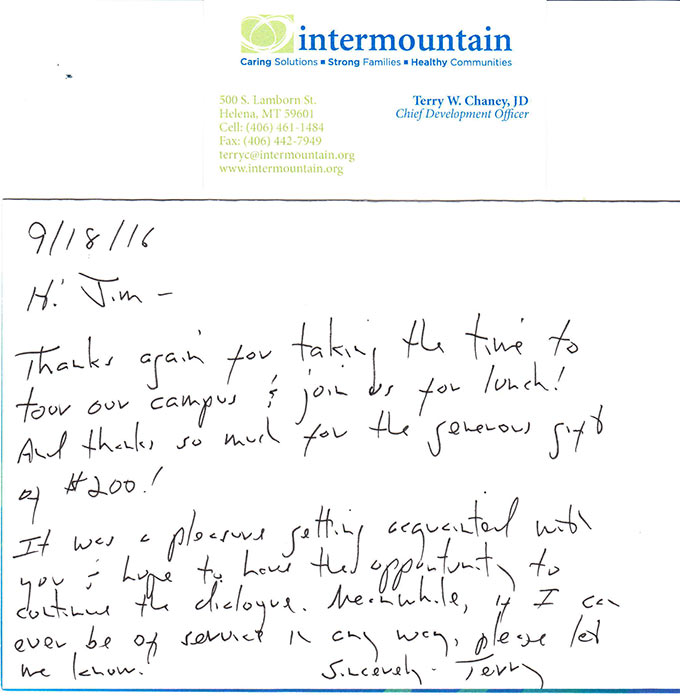 intermountain
Caring Solutions ▪ Strong Families ▪ Healthy Communities
500 S. Lamborn St.
Helena, MT 59601
Cell: (406) 461-1484
Fax: (406) 442-7949
terryc@intermountain.org
www.intermountain.org
Terry W. Chaney, JD
Chief Development Officer
9/18/16
Hi Jim -
Thanks again for taking the time to
tour our campus & join us for lunch!
And thanks so much for the generous gift
of $200!
It was a pleasure getting acquainted with
you & hope to have the opportunity to
continue the dialogue. Meanwhile, if I can
ever be of service in any way, please let
me know! Sincerely - Terry